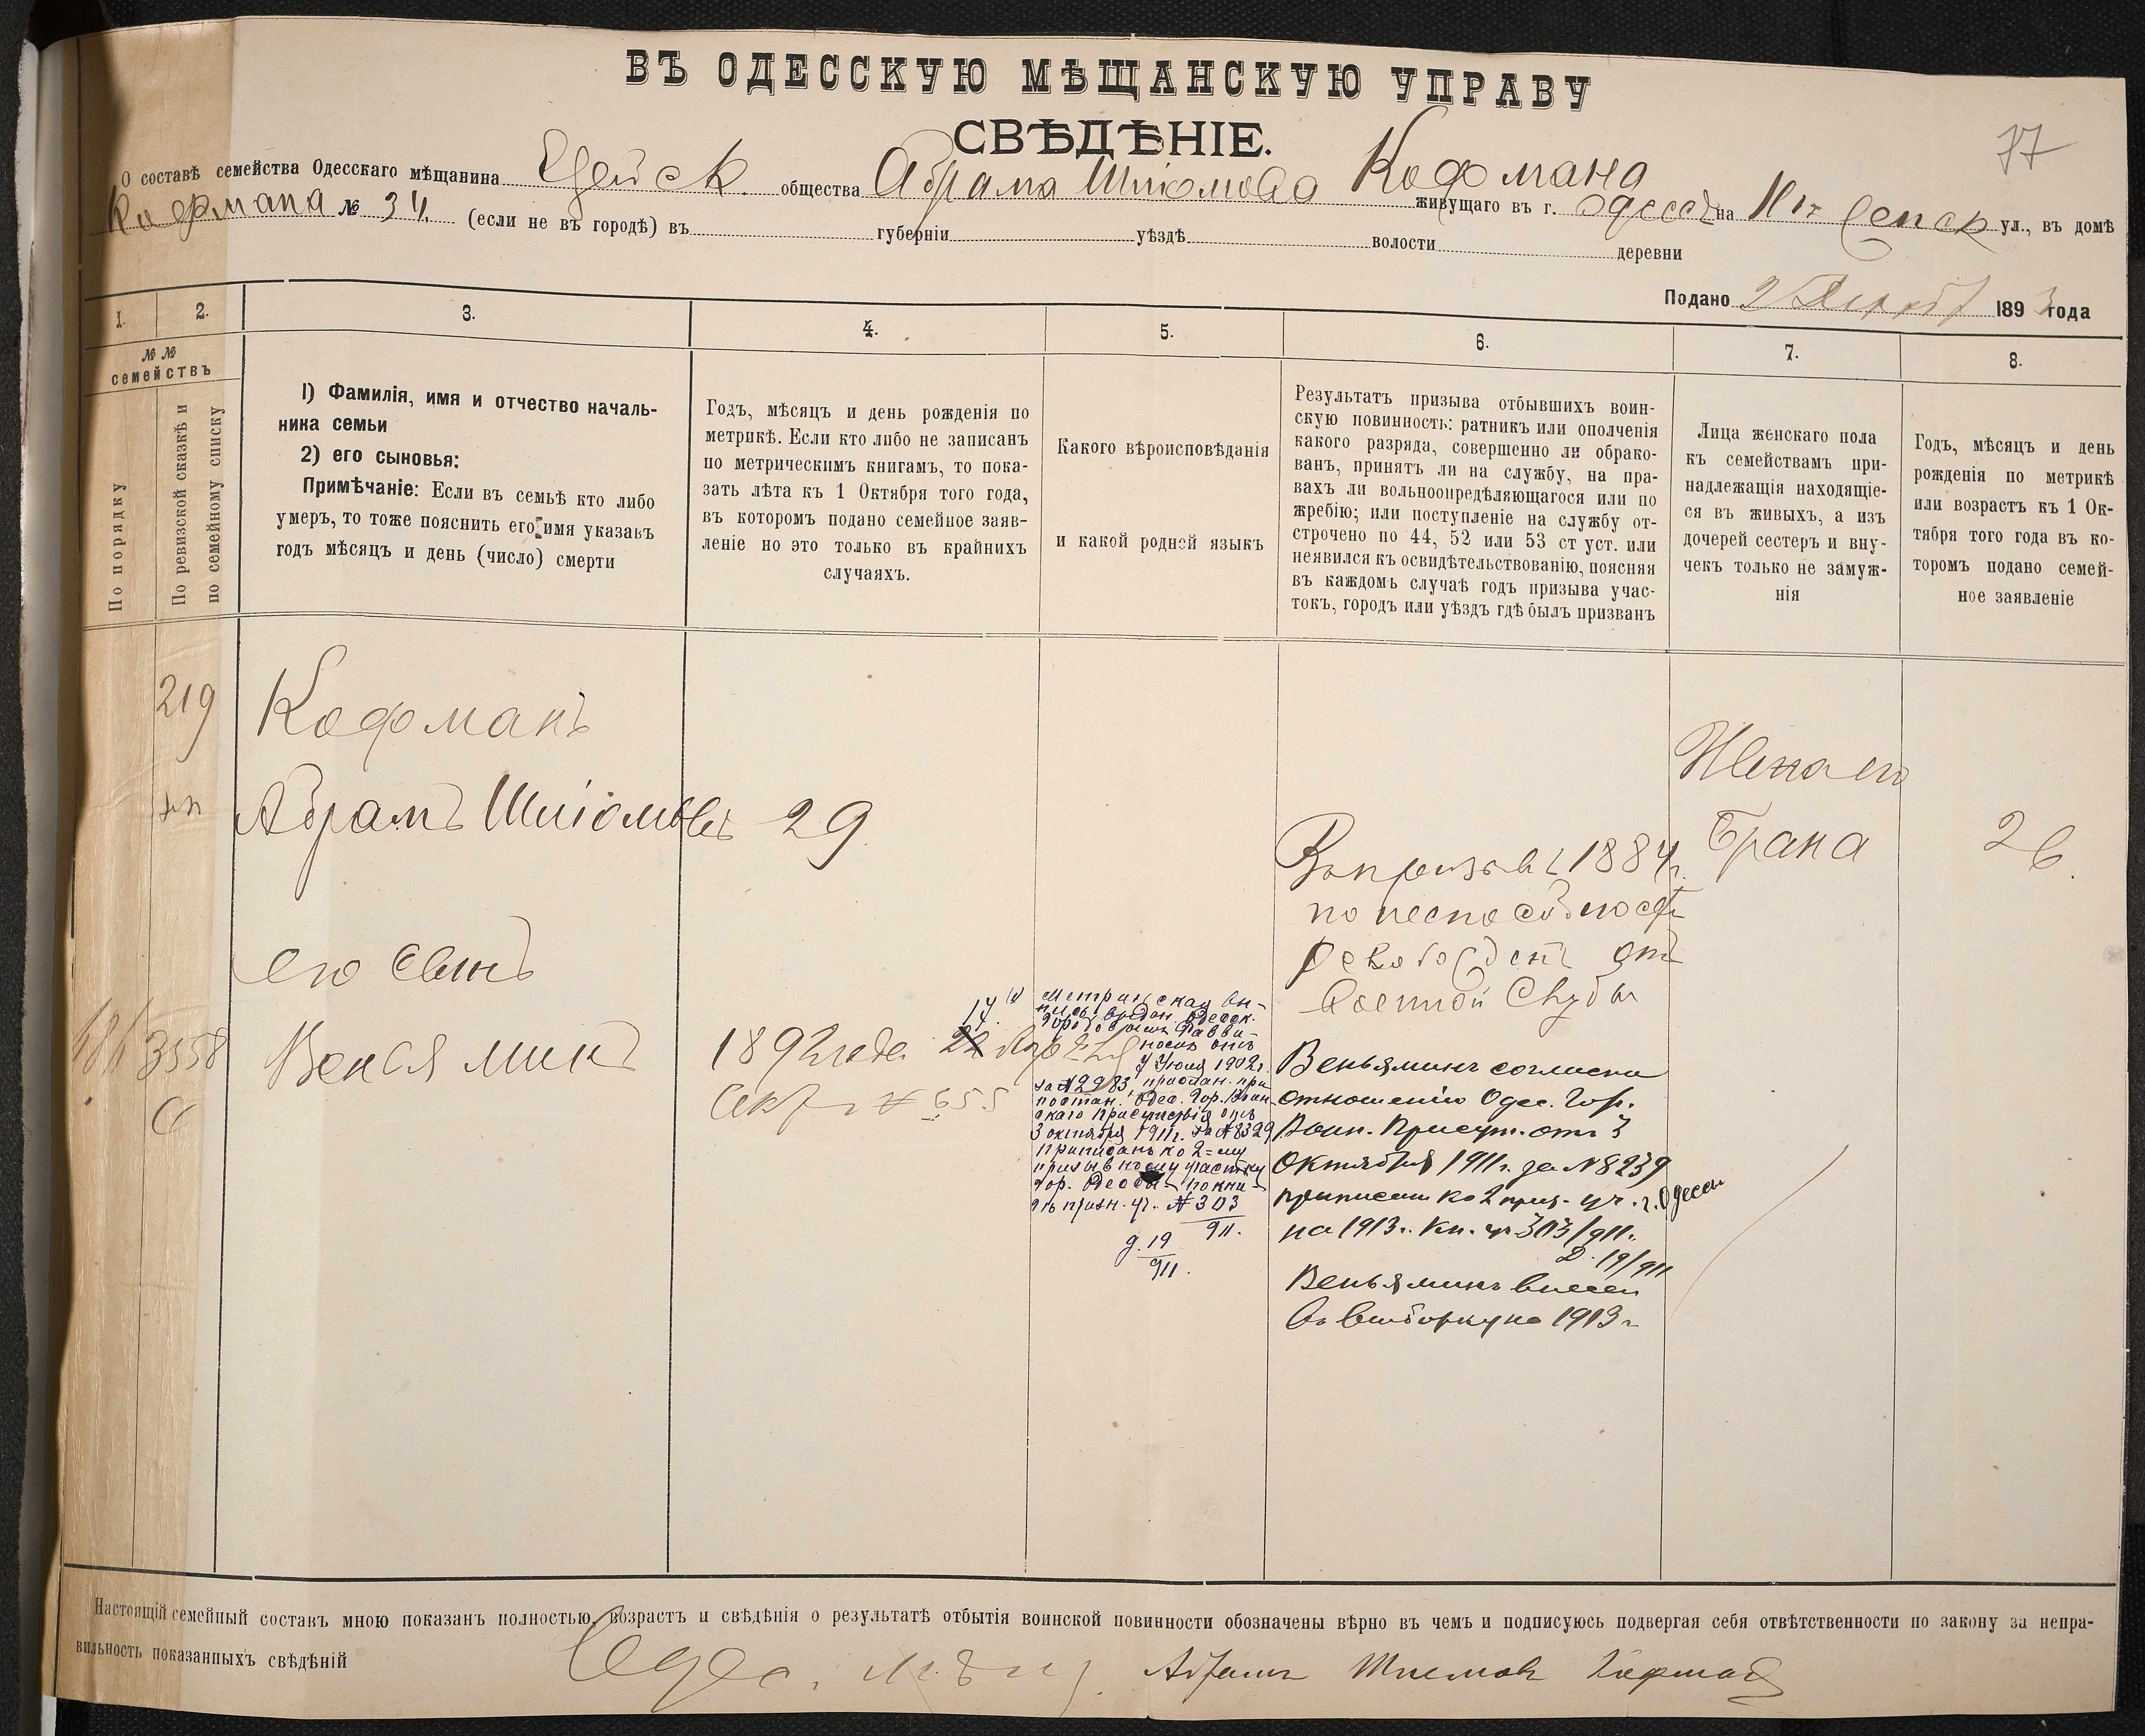 ВЪ ОДЕССКУЮ МѢЩАНСКУЮ УПРАВУ
СВѢДѢНІЕ.
77
О составѣ семейства Одесскаго мѣщанина Еврейск. общества Абрама Шліомова Кофмана
Кофмана № 34. (если не въ городѣ) въ губерніи уѣздѣ волости деревни живущаго въ г. Одессѣ на ул., въ домѣ
Подано 2 189 года
1. 2. 3. 4. 5. 6. 7. 8.
№ №
семействъ
По порядку
По ревизской сказкѣ и
по семейному списку
1) Фамилія, имя и отчество началь-
ника семьи
2) его сыновья:
Примѣчаніе: Если въ семьѣ кто либо
умеръ, то тоже пояснить его имя указавъ
годъ мѣсяцъ и день (число) смерти
Годъ, мѣсяцъ и день рожденія по
метрикѣ. Если кто либо не записанъ
по метрическимъ книгамъ, то пока-
зать лѣта къ 1 Октября того года,
въ которомъ подано семейное заяв-
леніе но это только въ крайнихъ
случаяхъ.
Какого вѣроисповѣданія
и какой родной языкъ
Результатъ призыва отбывшихъ воин-
скую повинность: ратникъ или ополченія
какого разряда, совершенно ли обрако-
ванъ, принятъ ли на службу, на пра-
вахъ ли вольноопредѣляющагося или по
жребію; или поступленіе на службу от-
строчено по 44, 52 или 53 ст уст. или
неявился къ освидѣтельствованію, поясняя
въ каждомъ случаѣ годъ призыва учас-
токъ, городъ или уѣздъ гдѣ былъ призванъ
Лица женскаго пола
къ семействамъ при-
надлежащія находящіе-
ся въ живыхъ, а изъ
дочерей сестеръ и вну-
чекъ только не замуж-
нія
Годъ, мѣсяцъ и день
рожденія по метрикѣ
или возрастъ къ 1 Ок-
тября того года въ ко-
торомъ подано семей-
ное заявленіе
219
Кофманъ
Абрамъ Шліомовъ 29
его сынъ
3558
Веніяминъ
1892 года 14
№ 655
Метрическая вы-
пись выдан. Одесск.
Городовымъ Равви-
номъ отъ
4 Іюля 1902г.
за №2983, прислан. при
постан. Одес. Гор. Воин
скаго Присутствія отъ
3 октября 1911г. за №8329
приписанъ ко 2=му
призывному участку
гор. Одессы по кни-
гѣ призн. уч. № 303
911.
д. 19
911.
Въ призывѣ 1884г.
по неспособности
освобожденъ отъ
военной Службы
Веньяминъ согласно
отношенію Одес. Гор.
Воин. Присут. отъ 3
Октября 1911г. за №8239
приписанъ ко 2 приз. уч. г. Одессы
на 1913г. Кн. уч 303/911г.
Д. 19/911
Веньяминъ внесен
въ выборку на 1913г
Жена его
Брана
26.
Настоящій семейный составъ мною показанъ полностью, возрастъ и свѣдѣнія о результатѣ отбытія воинской повинности обозначены вѣрно въ чемъ и подписуюсь подвергая себя отвѣтственности по закону за непра-
вильность показанныхъ свѣдѣній
Одес. мѣщ. Абрамъ Шлемовъ Кофманъ